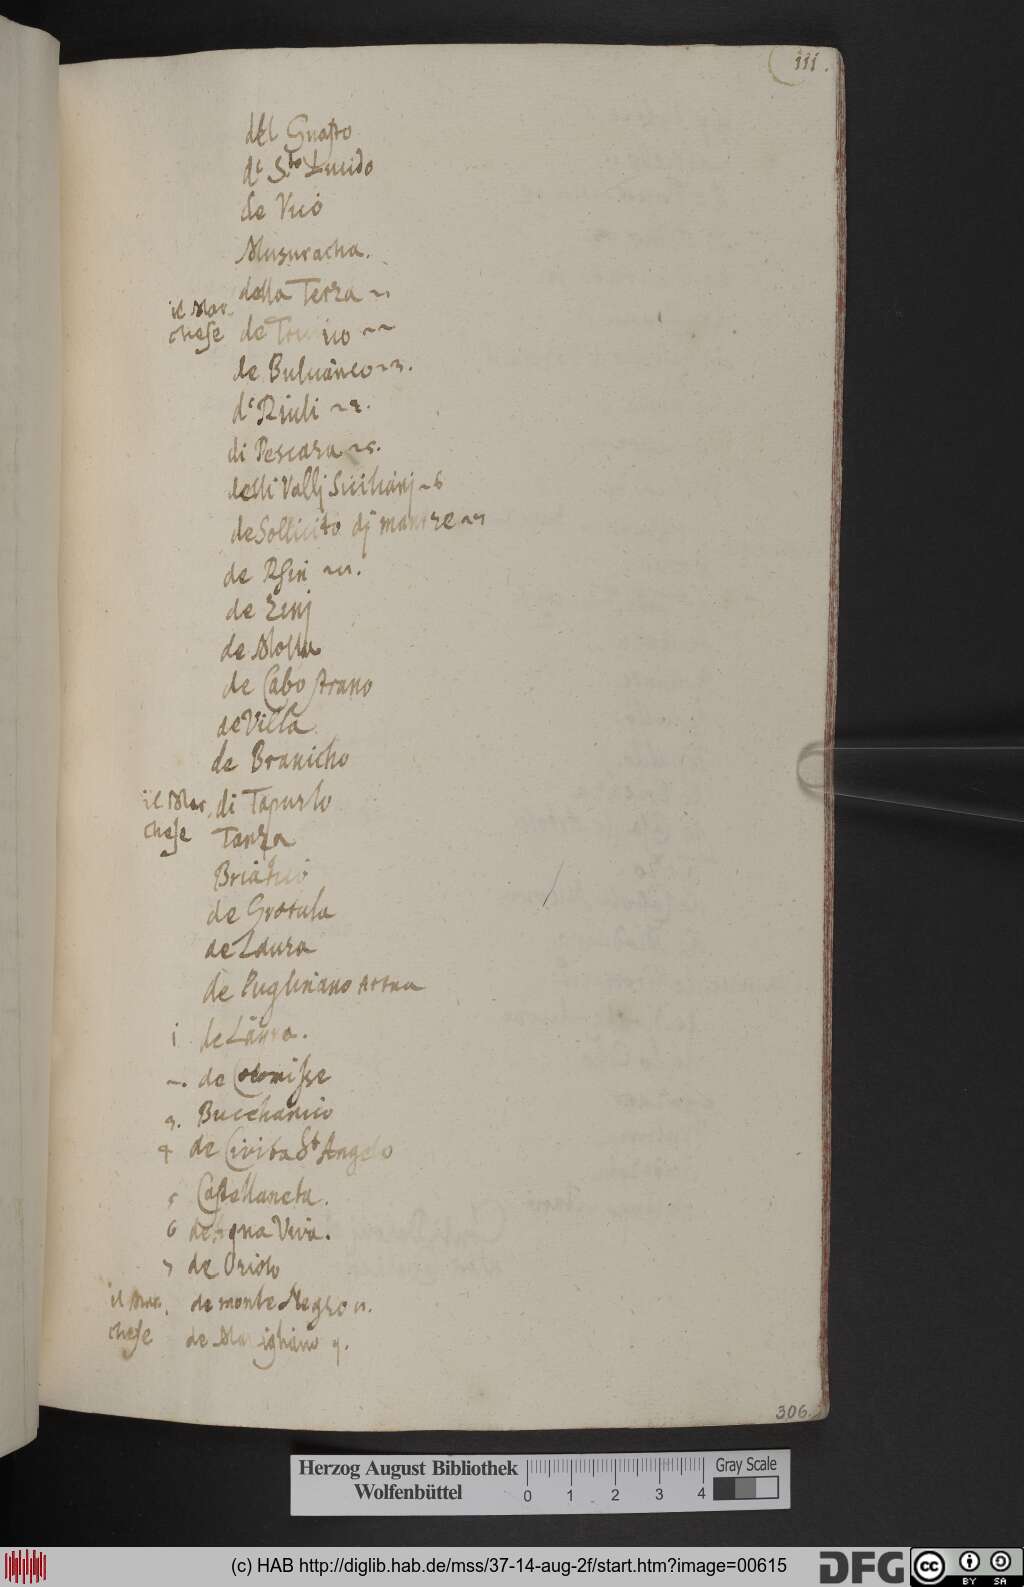 iii.
del Guasto
de S.to Lucido
de Vico
Musuracha.
della Terza
il Mar
chese
de
de Buluanco
de Riuli
di Pescara
delli Vallj Sicilianj 6
de Sollicito dj
de
de
de Motta
de Cabostrano
de Villa
de Branicho
il Mar
chese
di Tapurlo
Tanza
Briatico
de Grotula
de Laura
de Pugliniano
i de Laura.
de
3. Bucchanico
4 de Civita St Angelo
5 Castellaneta.
6 Viva.
7 de Oriolo
il Mar
chese
de monte Negro
de
306
Herzog August Bibliothek
Wolfenbüttel
0 1 2 3 4
Gray Scale
(c) HAB http://diglib.hab.de/mss/37-14-aug-2f/start.htm?image=00615
DFG
cc BY SA